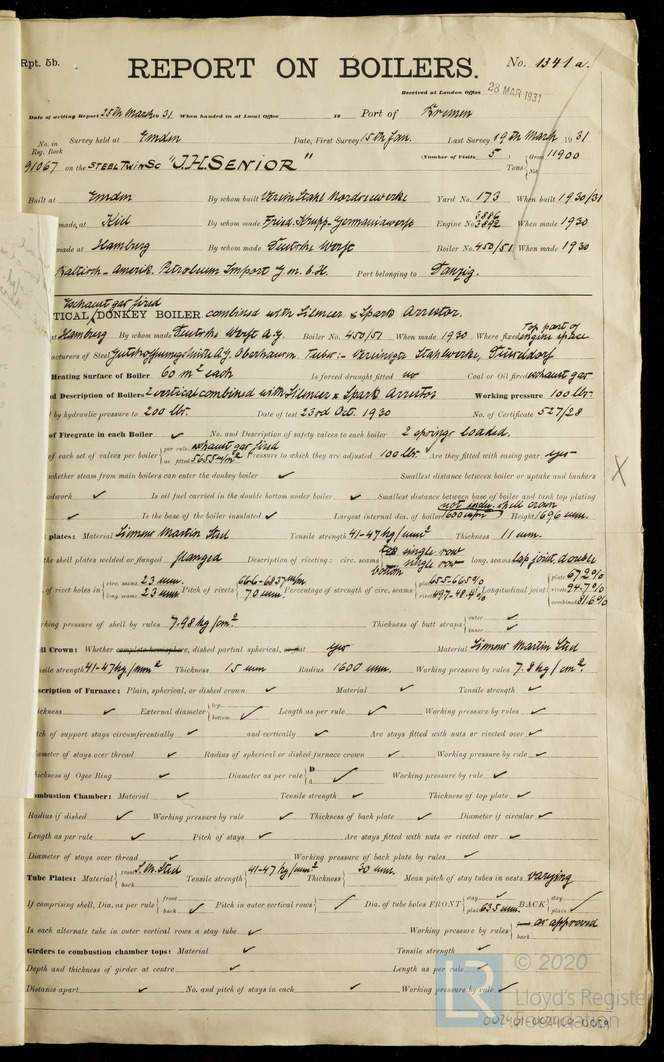 Rpt. 5b.
REPORT ON BOILERS.
No. 1341a.
Received at London Office 28 MAR 1931
Date of writing Report 25th March 31 When handed in at Local Office 19 Port of Bremen
No. in Reg. Book Survey held at Emden Date, First Survey 15th Jan. Last Survey 19th March 1931
(Number of Visits 5
91067 on the STEEL TWIN SC "J.H. SENIOR" Tons { Gross 11900 Net
Built at Emden By whom built Yard No. 173 When built 1930/31
made at Kiel By whom made Fried. Krupp-Germaniawerft Engine No. 3886 3892 When made 1930
made at Hamburg By whom made Deutsche Werft Boiler No. 450/51 When made 1930
Baltisch-Amerik. Petroleum Import G.m.b.H. Port belonging to Danzig.
Exhaust gas fired
TICAL DONKEY BOILER combined with Silencer & Spark Arrestor.
at Hamburg By whom made Deutsche Werft A.G. Boiler No. 450/51 When made 1930 Where fixed Top part of engine space
acturers of Steel Gutehoffnungshütte A.G. Oberhausen. Tubes:- Vereinigte Stahlwerke, Düsseldorf
Heating Surface of Boiler 60 m² each Is forced draught fitted no Coal or Oil fired exhaust gas
d Description of Boilers 2 vertical combined with Silencer & Spark Arrestor Working pressure 100 lbs.
d by hydraulic pressure to 200 lbs. Date of test 23rd Oct. 1930 No. of Certificate 527/28
of Firegrate in each Boiler ✓ No. and Description of safety valves to each boiler 2 springs loaded.
of each set of valves per boiler { per rule exhaust gas fired as fitted 5655 m/m² Pressure to which they are adjusted 100 lbs. Are they fitted with easing gear yes
whether steam from main boilers can enter the donkey boiler ✓ Smallest distance between boiler or uptake and bunkers
odwork ✓ Is oil fuel carried in the double bottom under boiler ✓ Smallest distance between base of boiler and tank top plating
✓ Is the base of the boiler insulated ✓ Largest internal dia. of boiler 1600 m/m Height 1696 mm.
plates: Material Siemens Martin Steel Tensile strength 41-47 kg/mm² Thickness 11 mm.
the shell plates welded or flanged flanged Description of riveting: circ. seams { top single row bottom single row long. seams lap joint, double
of rivet holes in { circ. seams 23 mm. long. seams 23 mm. Pitch of rivets { 66.6-68.37 m/m 70 mm. Percentage of strength of circ. seams { plate 65.5-66.5% rivets 49.7-48.4% Longitudinal joint { plate 67.2% rivets 94.7% combined 81.6%
rking pressure of shell by rules 7.98 kg/cm² Thickness of butt straps { outer ✓ inner ✓
ll Crown: Whether complete hemisphere, dished partial spherical, or flat yes Material Siemens Martin Steel
sile strength 41-47 kg/mm² Thickness 15 mm Radius 1600 mm. Working pressure by rules 7.8 kg/cm².
scription of Furnace: Plain, spherical, or dished crown ✓ Material ✓ Tensile strength ✓
ickness ✓ External diameter { top bottom ✓ Length as per rule ✓ Working pressure by rules ✓
tch of support stays circumferentially ✓ and vertically ✓ Are stays fitted with nuts or riveted over ✓
iameter of stays over thread ✓ Radius of spherical or dished furnace crown ✓ Working pressure by rule ✓
hickness of Ogee Ring ✓ Diameter as per rule { D d ✓ Working pressure by rule ✓
ombustion Chamber: Material ✓ Tensile strength ✓ Thickness of top plate ✓
Radius if dished ✓ Working pressure by rule ✓ Thickness of back plate ✓ Diameter if circular ✓
Length as per rule ✓ Pitch of stays ✓ Are stays fitted with nuts or riveted over ✓
Diameter of stays over thread ✓ Working pressure of back plate by rules ✓
Tube Plates: Material { front back S.M. Steel Tensile strength { 41-47 kg/mm² Thickness { 30 mm. Mean pitch of stay tubes in nests varying
If comprising shell, Dia. as per rule { front back ✓ Pitch in outer vertical rows { ✓ Dia. of tube holes FRONT { stay ✓ plain 63.5 mm. BACK { stay plain ✓
Is each alternate tube in outer vertical rows a stay tube ✓ Working pressure by rules { front as approved back
Girders to combustion chamber tops: Material ✓ Tensile strength ✓
Depth and thickness of girder at centre ✓ Length as per rule ✓
Distance apart ✓ No. and pitch of stays in each ✓ Working pressure by rule ✓
LR © 2020
Lloyd's Register
Foundation